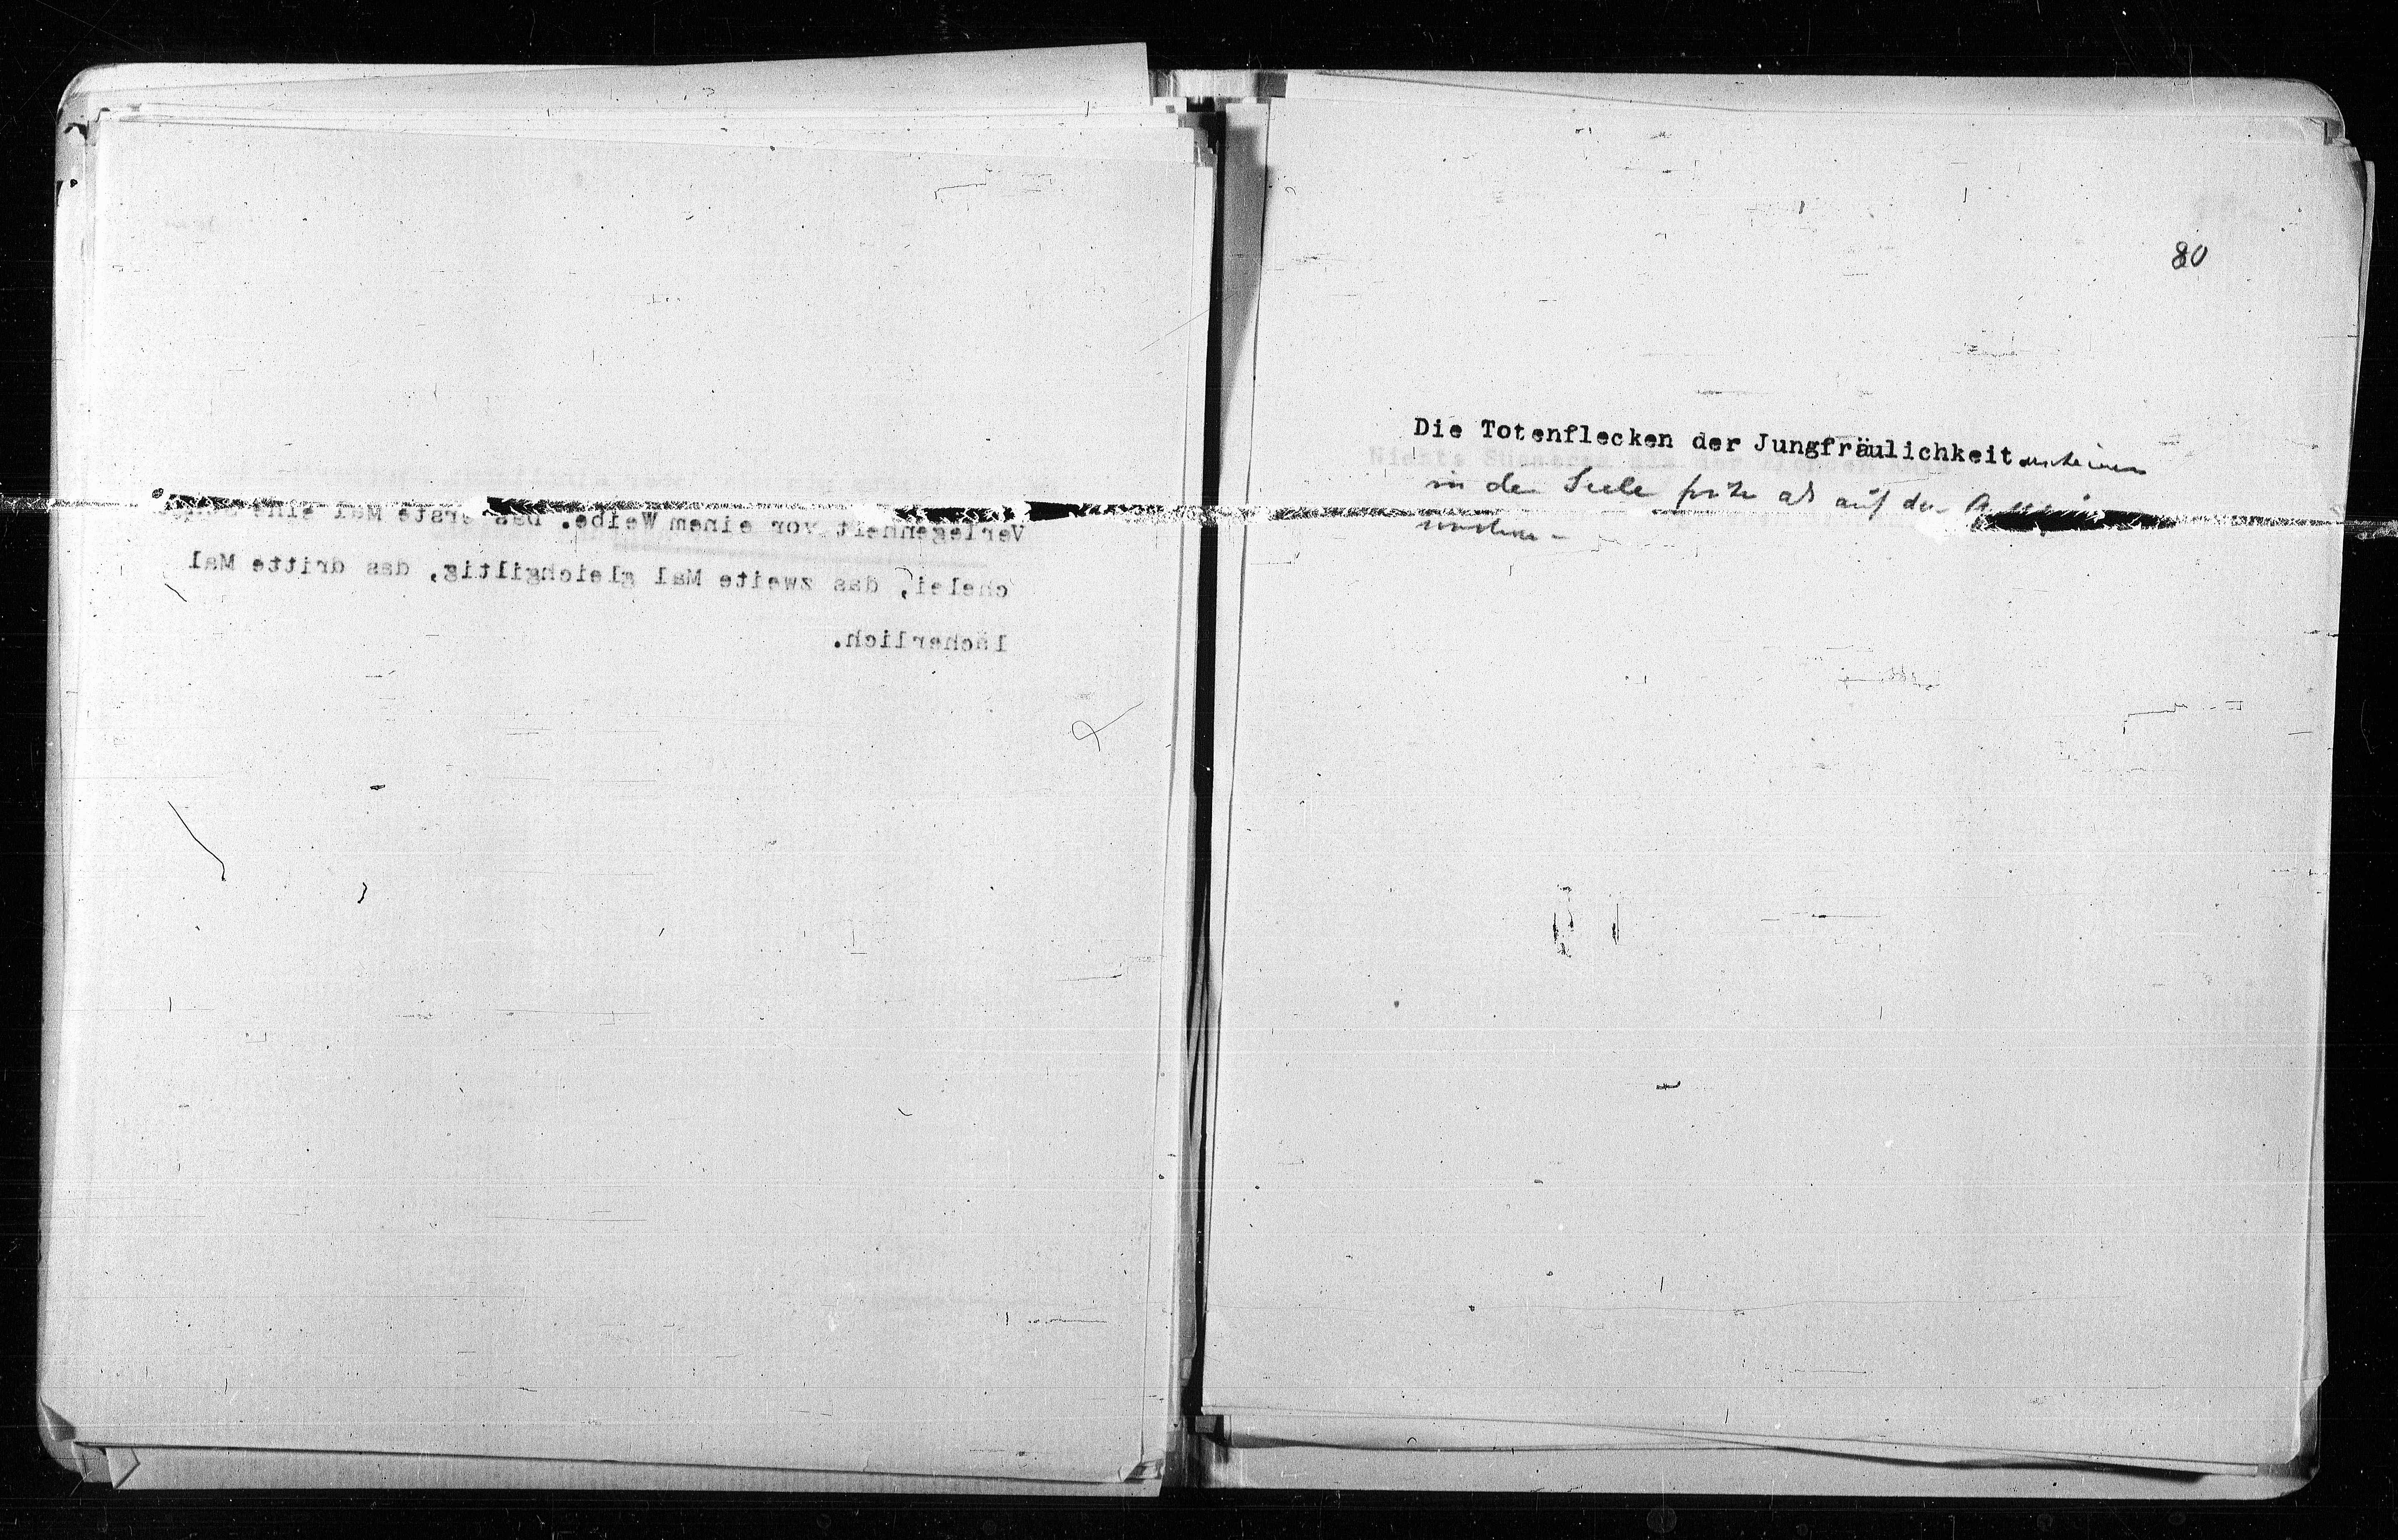 Verlegenheit vor einem Weibe. Das erste Mal eine
chelei, das zweite Mal gleichgiltig, das dritte Mal
lächerlich.
80
Die Totenflecken der Jungfräulichkeit erscheinen
in der Seele früher als auf dem